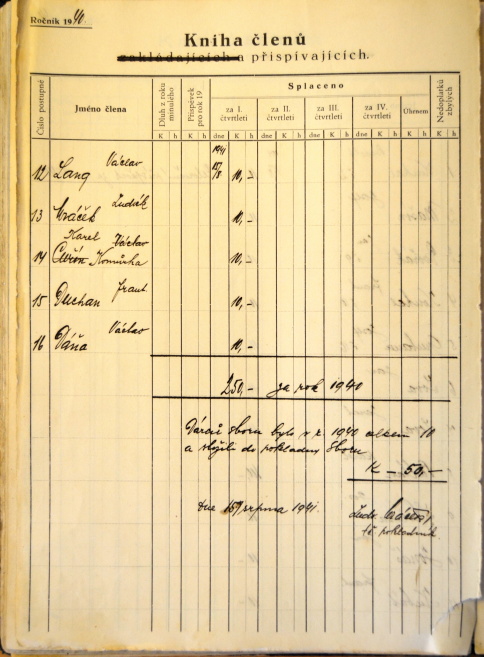 Ročník 1940
Kniha členů
zakládajících a přispívajících.
Číslo postupné
Jméno člena
Dluh z roku minulého
Příspěvek pro rok 19
Splaceno
za I. čtvrtletí
za II. čtvrtletí
za III. čtvrtletí
za IV. čtvrtletí
Úhrnem
Nedoplatků zbylých
K h K h dne K h dne K h dne K h dne K h K h K h
1941
Václav
12 Lang 15/8 10,-
Luděk
13 10,-
Karel Václav
14 Komůrka 10,-
Frant.
15 Duchan 10,-
Václav
16 Dáňa 10,-
250,- za rok 1940
Dárců sboru bylo v r. 1940 celkem 10
a složili do pokladny sboru
K - 50,-
dne 15/ srpna 1941.
Luděk
t.č. pokladník